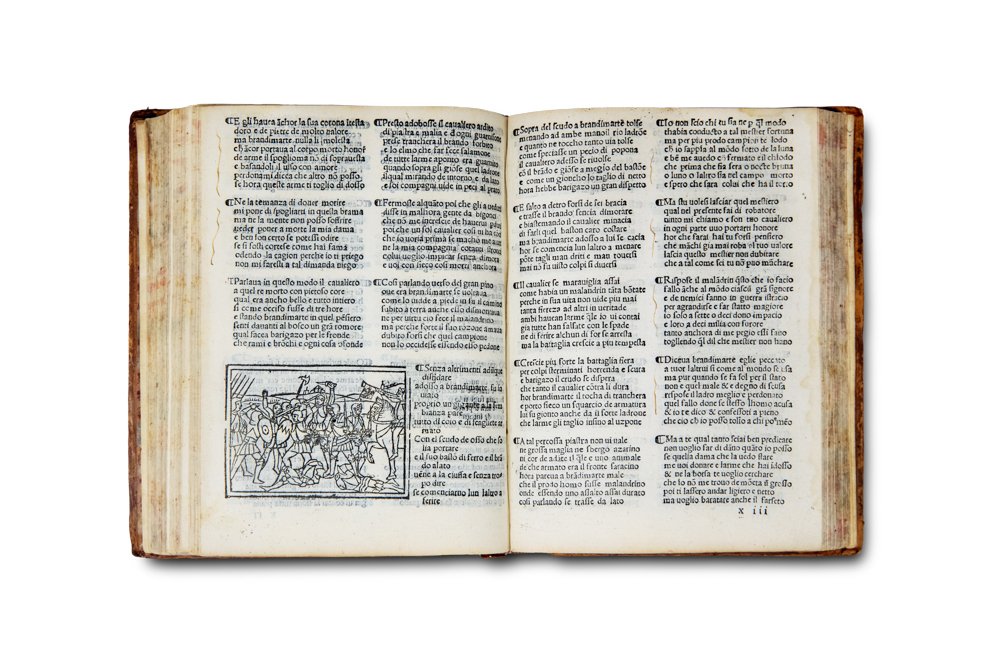 ¶E gli hauea ãchor la sua corona ĩ testa
doro e de pietre de molto ualore
ma brandimarte nulla li molesta
e bẽ cor portaua al corpo morto honor
de arme il spogliaua nõ di soprauesta
e basandoli il uiso con amore
perdonami dicea che altro nõ posso
se hora queste arme ti toglio di dosso
¶Ne la temanza di douer morire
mi pone di spogliarti in quella brama
ma ne la mente non posso soffrire
ueder poner a morte la mia dama
e ben son certo se potessi odire
se si fosti cortese come hai fama
odendo la cagion perche io ti priego
non mi faresti a tal dimanda niego
Parlaua in questo modo il caualiero
a quel re morto con pietoso core
qual era ancho bello e tutto intiero
si come occiso fusse di tre hore
e stando brandimarte in quel pẽsiero
senti dauanti al bosco un grã romore
qual facea barigazo per le fronde
che rami e brõchi e ogni cosa asconde
¶Presto adobosse il caualiero ardito
di piastra e malia e dogni guarnisone
prese tranchera il brando forbito
e lo elmo che far fece salamone
de tutte larme aponto era guarnito
quando sopra gli giõse quel ladrone
il qual mirando de intorno, e da lato
e soi compagni uide in peci al prato
¶Fermosse alquãto poi che gli a uedut
disse in malhora gente da bigonci
che nõ me increscie de hauerui perduti
poi che un sol caualier cosi ui ha cõci
che io uoria prima se macho me aiuti
ne la mia compagnia cotanti stronci
colui uoglio impicar senza dimora
e uoi con seco cosi morti anchora
¶Cosi parlando uerso del gran pino
oue era brandimarte se uoltaua
come lo uidde a piede in su il camino
subito a terra ancho esso dismontaua
ne per uirtu cio fece il malandrino
ma perche forte il suo rozone amaua
dubito forsi che quel campione
non lo occidesse essendo ello pedone
¶Senza altrimenti adũque
disfidare
adosso a brandimarte si fu
uiato
proprio un
bianza pare
tutto di coio e di scagliete ar
mato
Con el scudo de osso che so
lia portare
e il suo bastõ di ferro e il brã
do alato
uẽne a la ciuffa e senza tro
po dire
se comenciarno lun laltro a
ferire
¶Sopra del scudo a brandimarte tolse
menando ad ambe mano il rio ladrõe
e quanto ne toccho tanto uia tolse
come spezasse un pezo di popona
il caualiero adesso se riuolse
cõ il brãdo e giõse a mezo del bastõe
e come un gioncho lo taglio di netto
hora hebbe barigazo un gran dispetto
¶E salto a drето forsi de sei bracia
e trasse il brando sencia dimorare
e biastemando il caualier minacia
di farli quel baston caro costare
ma brandimarte adosso a lui se cacia
hor se comencia lun laltro a menare
põte tagli man driti e man rouersi
mai nõ fu uisto colpi si diuersi
¶Il caualier se marauiglia assai
come habia un malandrin tãta bõtate
perche in sua uita non uide piu mai
tanta fierezo ad altri in ueritade
ambi haucan larme qle io ui contai
gia tutte han falsate con le spade
ne di ferire alchun di lor se arresta
ma la battaglia crescie a piu tempesta
¶Crescie piu forte la battaglia fiera
per colpi sterminati horrenda e scura
e barigazo il crudo se dispera
che tanto il caualier cõtra li dura
hor brandimarte il tocha di tranchera
e porto seco un squarcio de armatura
lui fu gionto anche da il forte ladrone
che larme gli taglio insino al uzpone
¶A tal percossa piastra non ui uale
ne grossa maglia ne sbergo azarino
ne cor de adate si q̃le e uno animale
de che armato era il fronte saracino
hora pareua a brãdimarte male
che il prodo homo fusse malandrino
onde essendo uno assalto assai durato
cosi parlando se trasse da lato
¶Io non scio chi tu sia ne p q̃l modo
thabia conducto a tal mestier fortuna
ma per piu prodo campion te lodo
ch io sappia al mõdo sotto de la luna
e bẽ me auedo e fermato e il chiodo
che prima che sia sera o nocte bruna
o luno o laltro fia nel campo morto
e spero che sara colui che ha il torto.
¶Ma stu uolesi lasciar quel mestiero
qual nel presente fai di robatore
uinto mi chiamo e son tuo caualiero
in ogni parte uuo portarti honore
hor che farai hai tu forsi pensiero
che mãchi gia mai roba al tuo ualore
lascia quello mestier non dubitare
che a tal come sei tu nõ puo mãchare
¶Rispose il malãdrin q̃sto che io facio
fallo ãche al mõdo ciascũ grã signore
e de nemici fanno in guerra istracio
per agrandire e far stato magiore
io solo a sette o deci dono impacio
e loro a deci milia con furore
tanto anchora di me pegio essi fano
togliendo q̃l dil che mestier non hano
¶Diceua brandimarte eglie peccato
a tuor laltrui si come al mondo se usa
ma pur quando se fa sol per il stato
non e quel male & e degno di scusa
rispose il ladro meglio e perdonato
quel fallo dõne se stesso lhomo acusa
& io te dico & confessoti a pieno
che cio che posso toglio a chi po mẽo
¶Ma a te qual tanto sciai ben predicare
non uoglio far di dãno quãto io posso
se quella dama che la uedo stare
me uoi donare e larme che hai idosso
& ne la borsa te uoglio cerchare
che io nõ me trouo de mõeta il grosso
poi ti lassero andar ligiero e netto
ma uoglio baratare anche il farseto
x iii